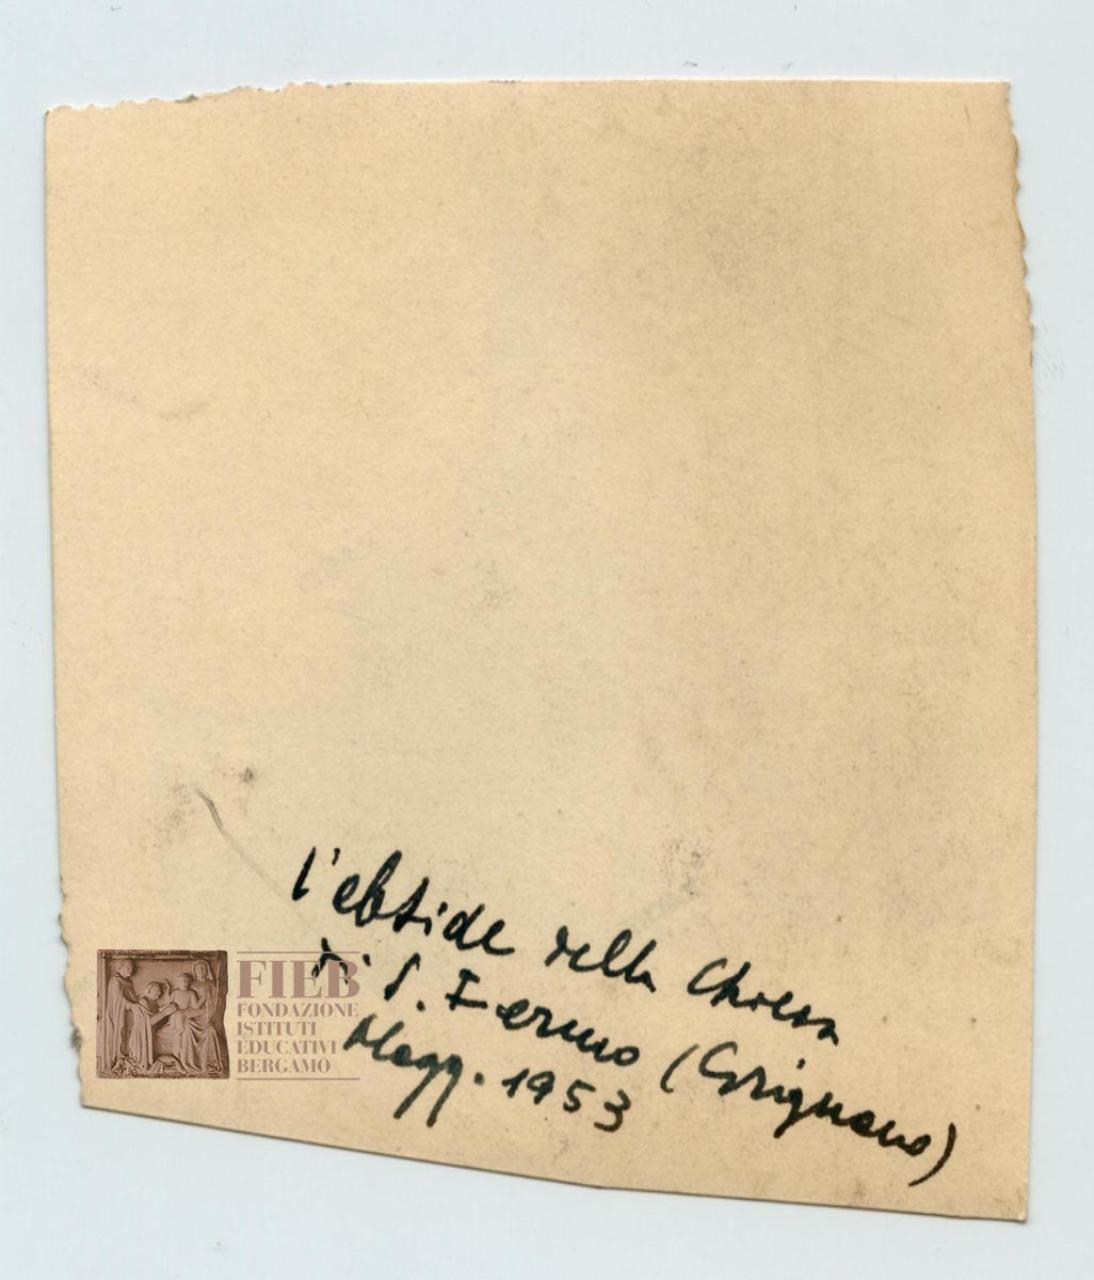 l'abside della Chiesa
di S. Fermo (Grignano)
Magg. 1953
FIEB
FONDAZIONE
ISTITUTI
EDUCATIVI
BERGAMO